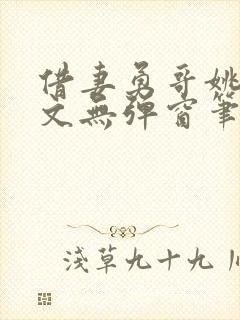 借妻勇哥姚
文無彈窗筆
淺草九十九